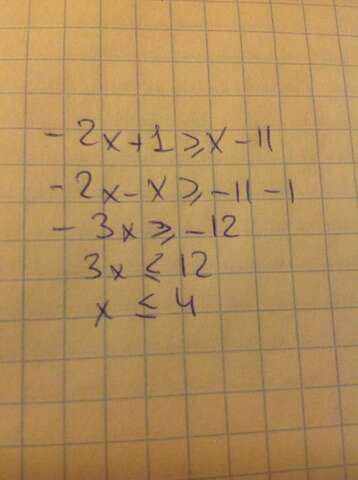 -2x+1≥x-11
-2x-x≥-11-1
-3x≥-12
3x≤12
x≤4